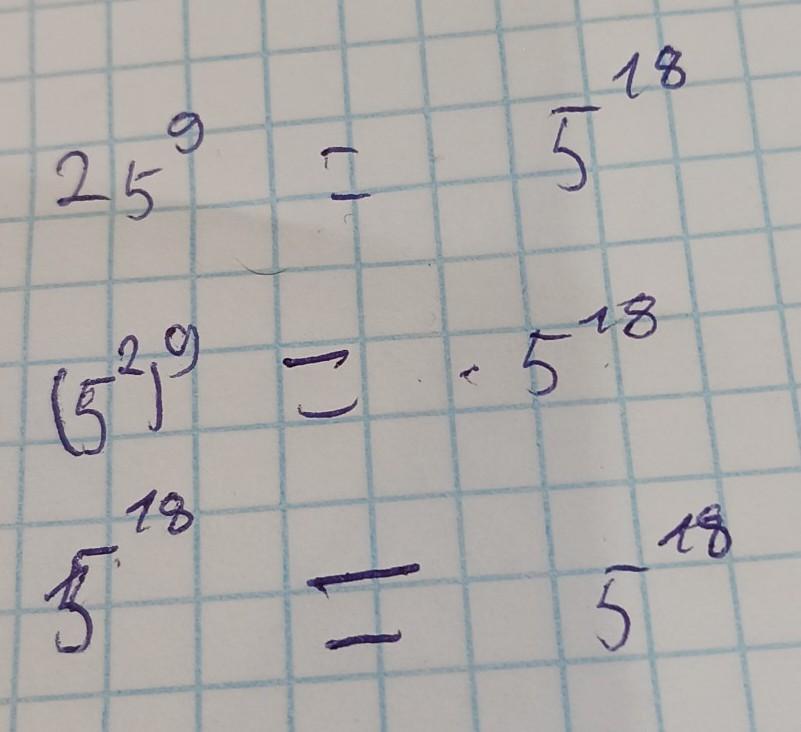 25⁹ = 5¹⁸
(5²)⁹ = 5¹⁸
5¹⁸ = 5¹⁸